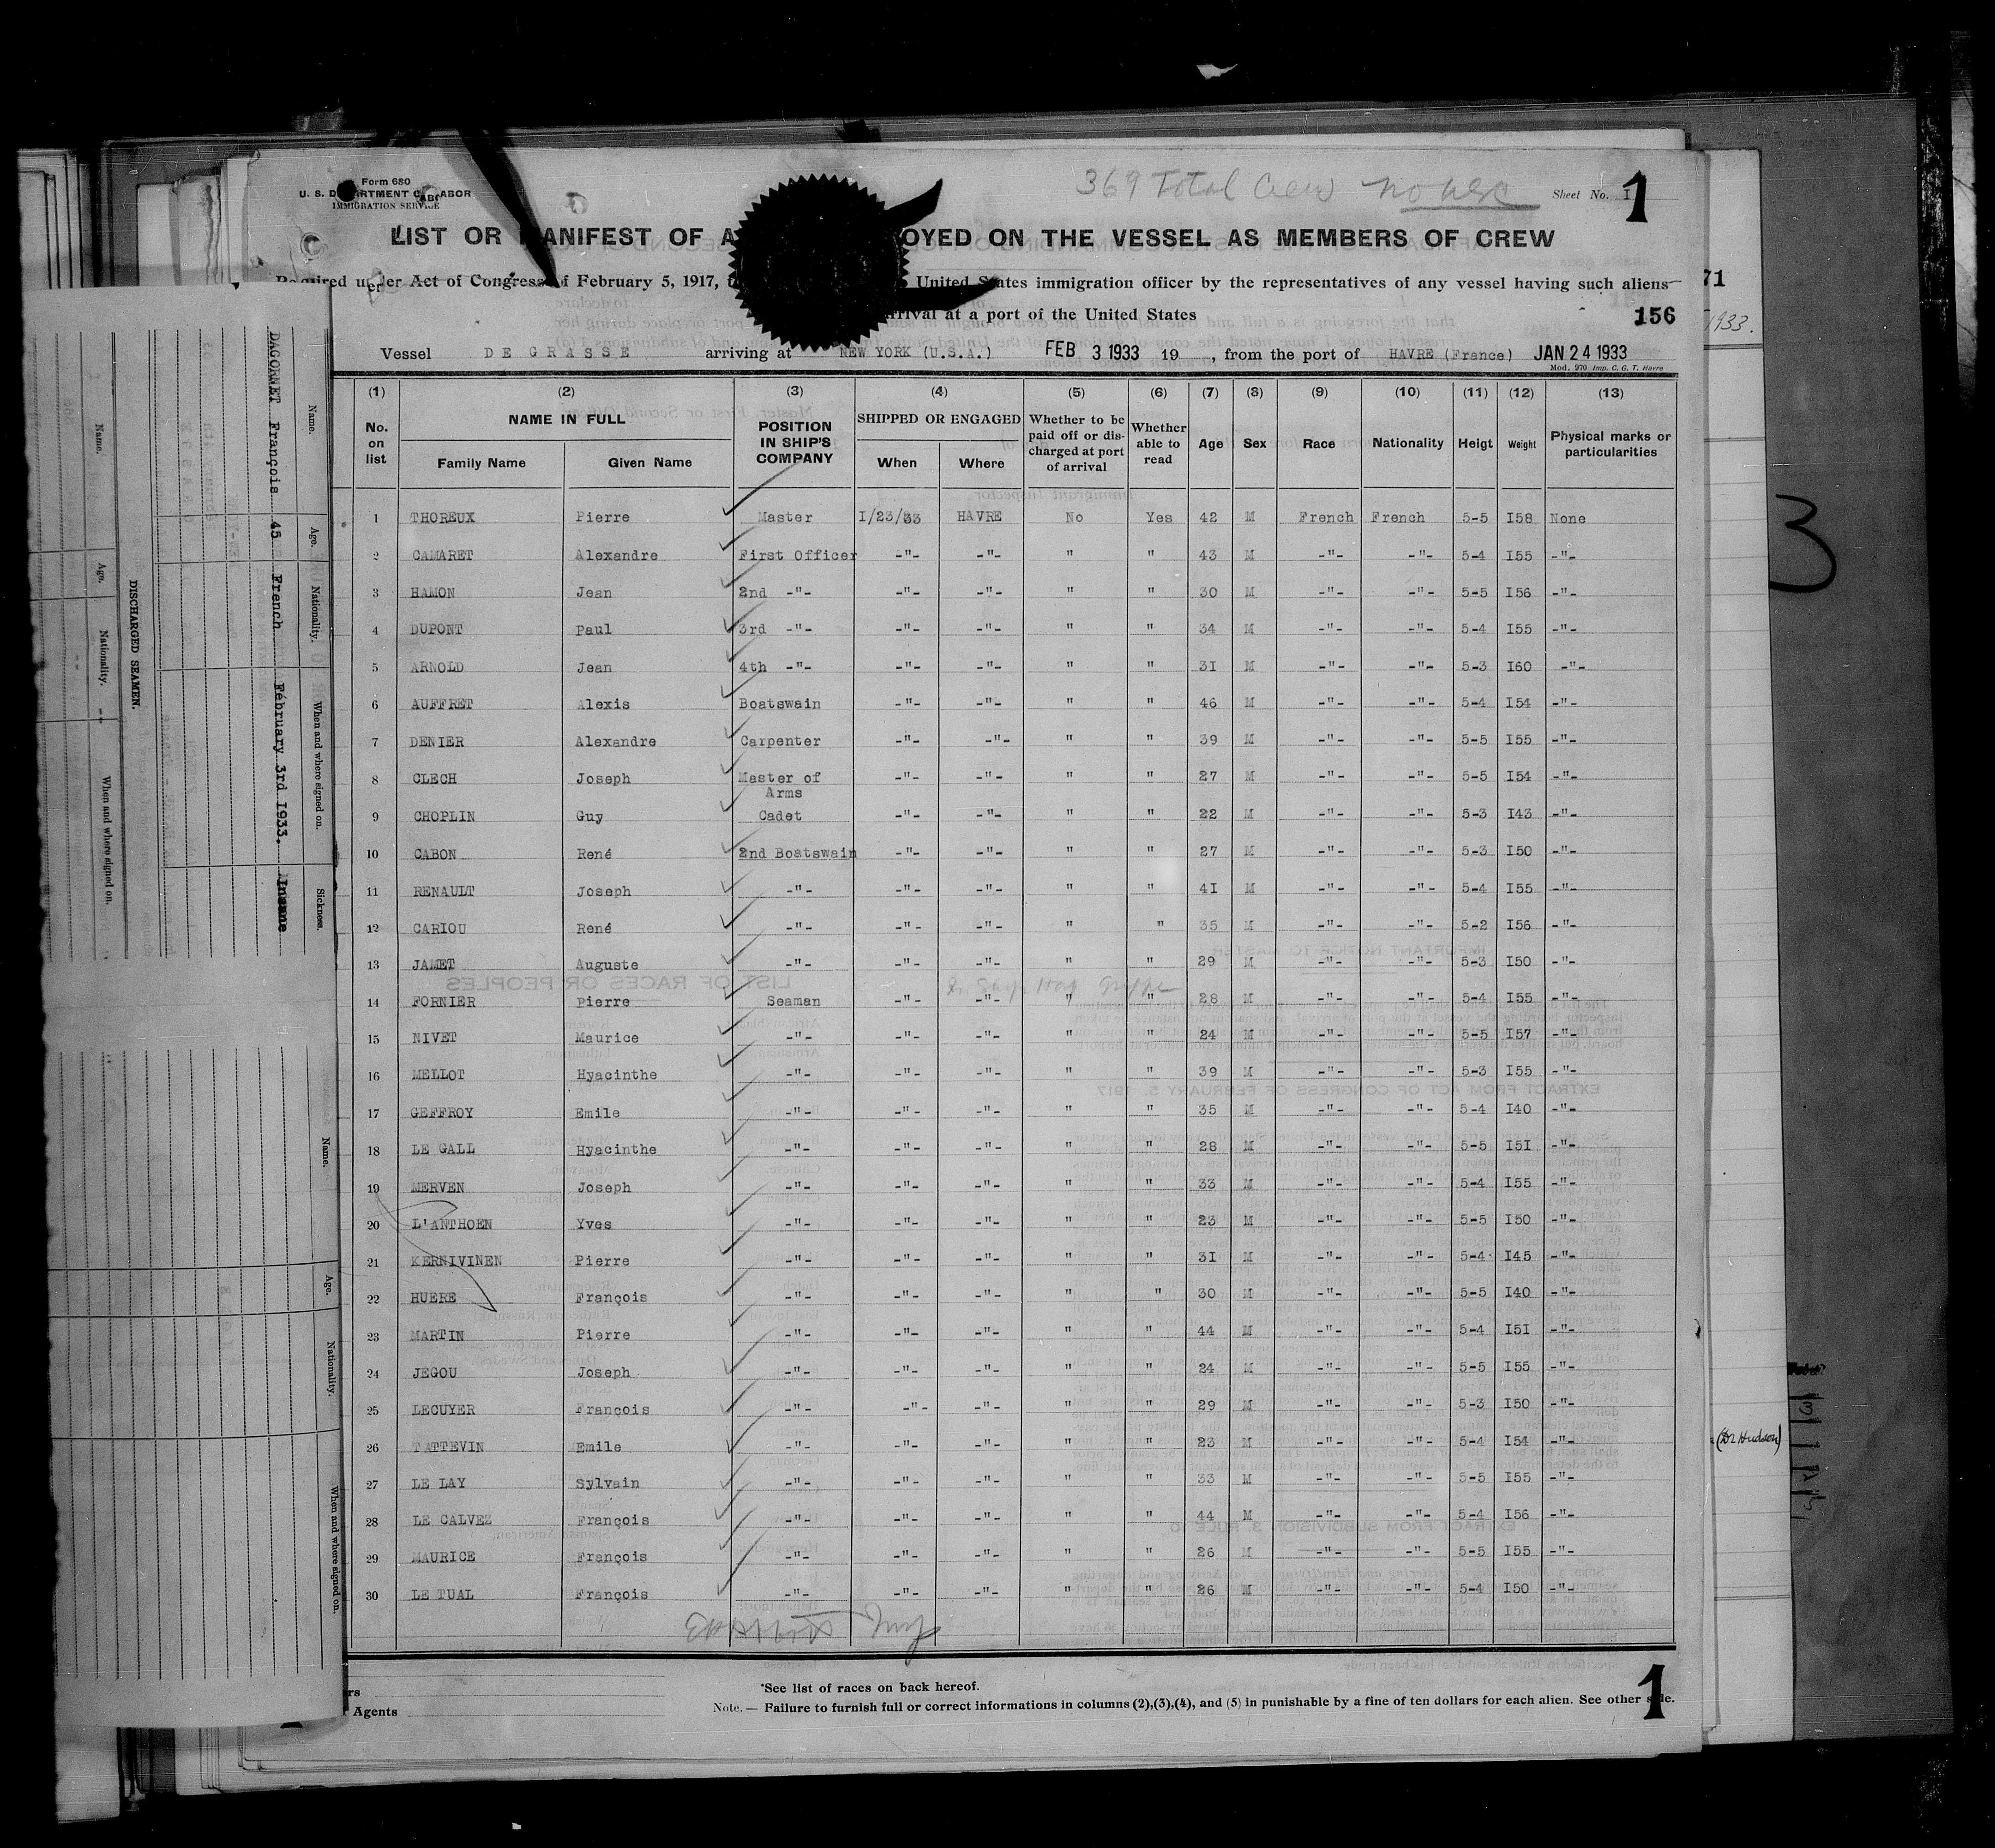 Form 680
IMMIGRATION SERVICE
369 Total Crew
Sheet No. I
1
LIST OR MANIFEST OF OYED ON THE VESSEL AS MEMBERS OF CREW
under Act of Congress of February 5, 1917, United States immigration officer by the representatives of any vessel having such aliens
arrival at a port of the United States
156
Vessel DE GRASSE arriving at NEW YORK (U.S.A.) FEB 3 1933 19 , from the port of HAVRE (France) JAN 24 1933
Mod. 970 Imp. C. G. T. Havre
(1) (2) (3) (4) (5) (6) (7) (8) (9) (10) (11) (12) (13)
No. on list NAME IN FULL Family Name Given Name POSITION IN SHIP'S COMPANY SHIPPED OR ENGAGED When Where Whether to be paid off or discharged at port of arrival Whether able to read Age Sex Race Nationality Heigt Weight Physical marks or particularities
1 THOREUX Pierre Master I/23/33 HAVRE No Yes 42 M French French 5-5 I58 None
2 CAMARET Alexandre First Officer -"- -"- " " 43 M -"- -"- 5-4 I55 -"-
3 HAMON Jean 2nd -"- -"- -"- " " 30 M -"- -"- 5-5 I56 -"-
4 DUPONT Paul 3rd -"- -"- -"- " " 34 M -"- -"- 5-4 I55 -"-
5 ARNOLD Jean 4th -"- -"- -"- " " 3I M -"- -"- 5-3 I60 -"-
6 AUFFRET Alexis Boatswain -"- -"- " " 46 M -"- -"- 5-4 I54 -"-
7 DENIER Alexandre Carpenter -"- -"- " " 39 M -"- -"- 5-5 I55 -"-
8 CLECH Joseph Master of Arms -"- -"- " " 27 M -"- -"- 5-5 I54 -"-
9 CHOPLIN Guy Cadet -"- -"- " " 22 M -"- -"- 5-3 I43 -"-
10 CABON René 2nd Boatswain -"- -"- " " 27 M -"- -"- 5-3 I50 -"-
11 RENAULT Joseph -"- -"- -"- " " 4I M -"- -"- 5-4 I55 -"-
12 CARIOU René -"- -"- -"- " " 35 M -"- -"- 5-2 I56 -"-
13 JAMET Auguste -"- -"- -"- " " 29 M -"- -"- 5-3 I50 -"-
14 FORNIER Pierre Seaman -"- -"- " " 28 M -"- -"- 5-4 I55 -"-
15 NIVET Maurice -"- -"- -"- " " 24 M -"- -"- 5-5 I57 -"-
16 MELLOT Hyacinthe -"- -"- -"- " " 39 M -"- -"- 5-3 I55 -"-
17 GEFFROY Emile -"- -"- -"- " " 35 M -"- -"- 5-4 I40 -"-
18 LE GALL Hyacinthe -"- -"- -"- " " 28 M -"- -"- 5-5 I5I -"-
19 MERVEN Joseph -"- -"- -"- " " 33 M -"- -"- 5-4 I55 -"-
20 L'ANTHOEN Yves -"- -"- -"- " " 23 M -"- -"- 5-5 I50 -"-
21 KERNIVINEN Pierre -"- -"- -"- " " 3I M -"- -"- 5-4 I45 -"-
22 HUERE François -"- -"- -"- " " 30 M -"- -"- 5-5 I40 -"-
23 MARTIN Pierre -"- -"- -"- " " 44 M -"- -"- 5-4 I5I -"-
24 JEGOU Joseph -"- -"- -"- " " 24 M -"- -"- 5-5 I55 -"-
25 LECUYER François -"- -"- -"- " " 29 M -"- -"- 5-3 I50 -"-
26 TATTEVIN Emile -"- -"- -"- " " 23 M -"- -"- 5-4 I54 -"-
27 LE LAY Sylvain -"- -"- -"- " " 33 M -"- -"- 5-5 I55 -"-
28 LE CALVEZ François -"- -"- -"- " " 44 M -"- -"- 5-4 I56 -"-
29 MAURICE François -"- -"- -"- " " 26 M -"- -"- 5-5 I55 -"-
30 LE TUAL François -"- -"- -"- " " 26 M -"- -"- 5-4 I50 -"-
Agents
*See list of races on back hereof.
Note. — Failure to furnish full or correct informations in columns (2),(3),(4), and (5) in punishable by a fine of ten dollars for each alien. See other side.
1
Name. Age. Nationality. When and where signed on. Sickness.
DAGORNET François 45 French February 3rd I933. Insane
DISCHARGED SEAMEN.
Name. Age. Nationality. When and where signed on.
Name. Age. Nationality. When and where signed on.
71
1933.
3
(Dr Hudson)